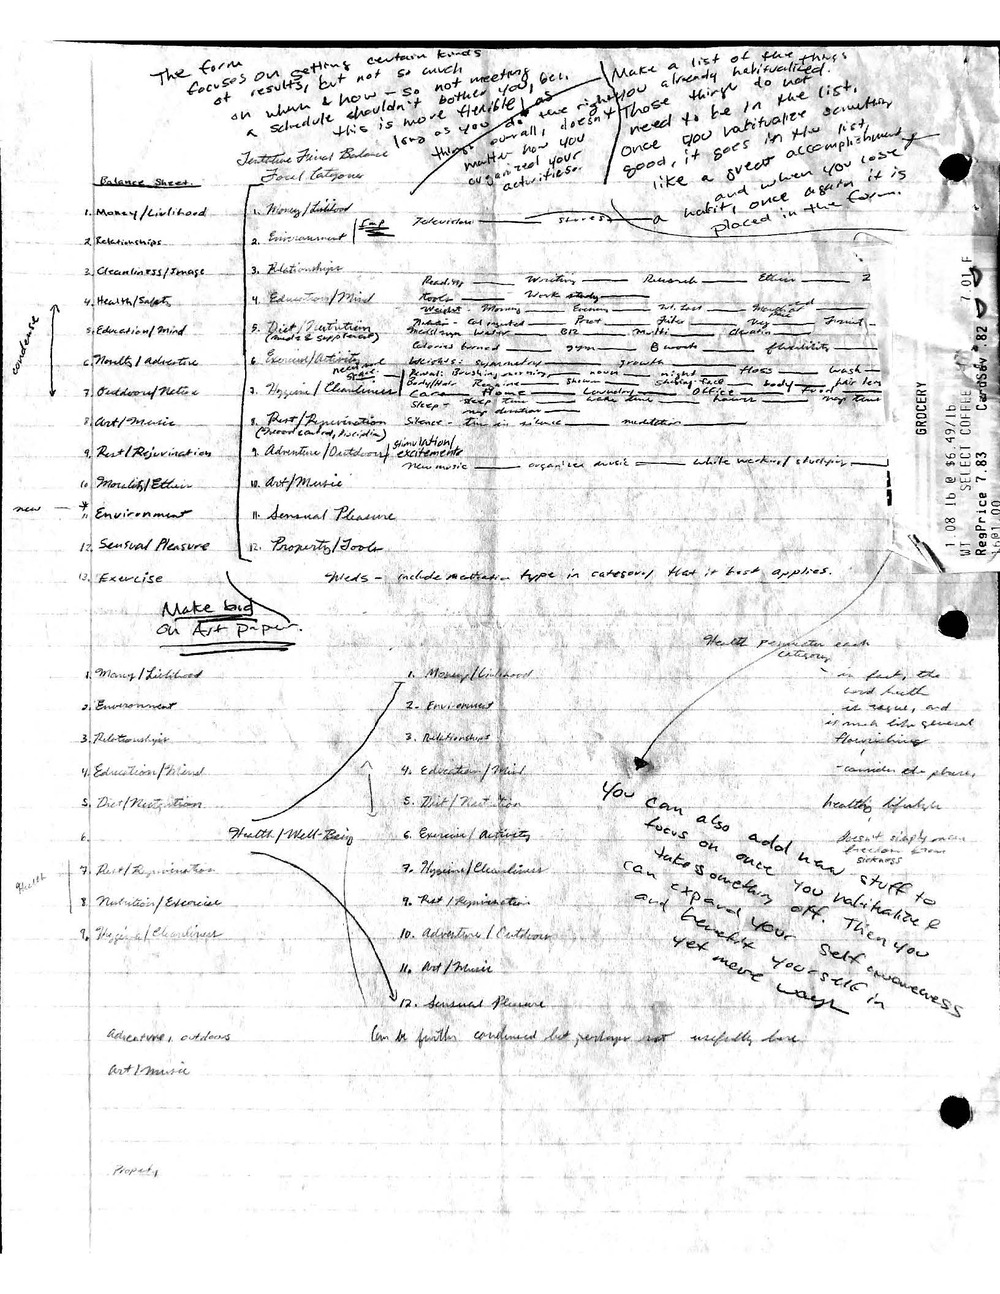 The form
focuses on getting certain kinds
of results, but not so much
on when & how – so not meeting
a schedule shouldn't bother you, bec.
this is more flexible, as
long as you do the right
things overall, doesn't
matter how you
organized your
activities.
Make a list of the things
you already habitualized.
Those things do not
need to be in the list.
Once you habitualize something
good, it goes in the list,
like a great accomplishment
and when you lose
a habit, once again it is
placed in the form.
Balance Sheet.
1. Money/Livlihood
2. Relationships
3. Cleanliness/Image
4. Health/Safety
5. Education/Mind
6. Novelty/adventure
7. Outdoors/Nature
8. Art/Music
9. Rest/Rejuvination
10. Morality/Ethics
new — * 11. Environment
12. Sensual Pleasure
13. Exercise
condense
Tentative Final Balance
Focal Categories
1. Money/Livlihood
2. Environment
Television — stores
3. Relationships
Reading — Writing — Research — Ethics — 2
4. Education/Mind
Tools — Work study —
Weight - Morning — Evening
5. Diet/Nutrition
(meds & supplements)
Calories burned — gym — flexibility
6. Exercise/Activity
Weights: symmetry — growth
night — Floss — Wash —
7. Hygiene/Cleanliness
Body/Hair — shower — shaving: face — body — hair
Home — Laundry — Office — Food
Sleep: sleep time — wake time — hours — nap time
nap duration —
8. Rest/Rejuvination
Silence - time in silence — meditation —
9. Adventure/Outdoors/
stimulation/
excitements
New music — organize music — while working/studying —
10. Art/Music
11. Sensual Pleasure
12. Property/Tools
Meds - include medication type in category that it best applies.
Make bid
on Art paper.
GROCERY
1.08 lb @ $6.49/lb
WT SELECT COFFEE 7.01 F
RegPrice 7.83 CardSav .82
Health permeates each
category
- in fact, the
word health
is vague, and
is much like general
flourishing
- consider the phrase,
healthy lifestyle
doesn't simply mean
freedom from
sickness
1. Money/Livlihood
2. Environment
3. Relationships
4. Education/Mind
5. Diet/Nutrition
6. Health/Well-Being
7. Rest/Rejuvination
8. Nutrition/Exercise
9. Hygiene/Cleanliness
Health
adventure, outdoors
art/music
Property
1. Money/Livlihood
2. Environment
3. Relationships
4. Education/Mind
5. Diet/Nutrition
6. Exercise/Activity
7. Hygiene/Cleanliness
9. Rest/Rejuvination
10. Adventure/Outdoors
11. Art/Music
12. Sensual Pleasure
Can be further condensed but perhaps not usefully here
You can also add new stuff to
focus on once you habitualize &
take something off. Then you
can expand your self awareness
and benefit yourself in
yet more ways